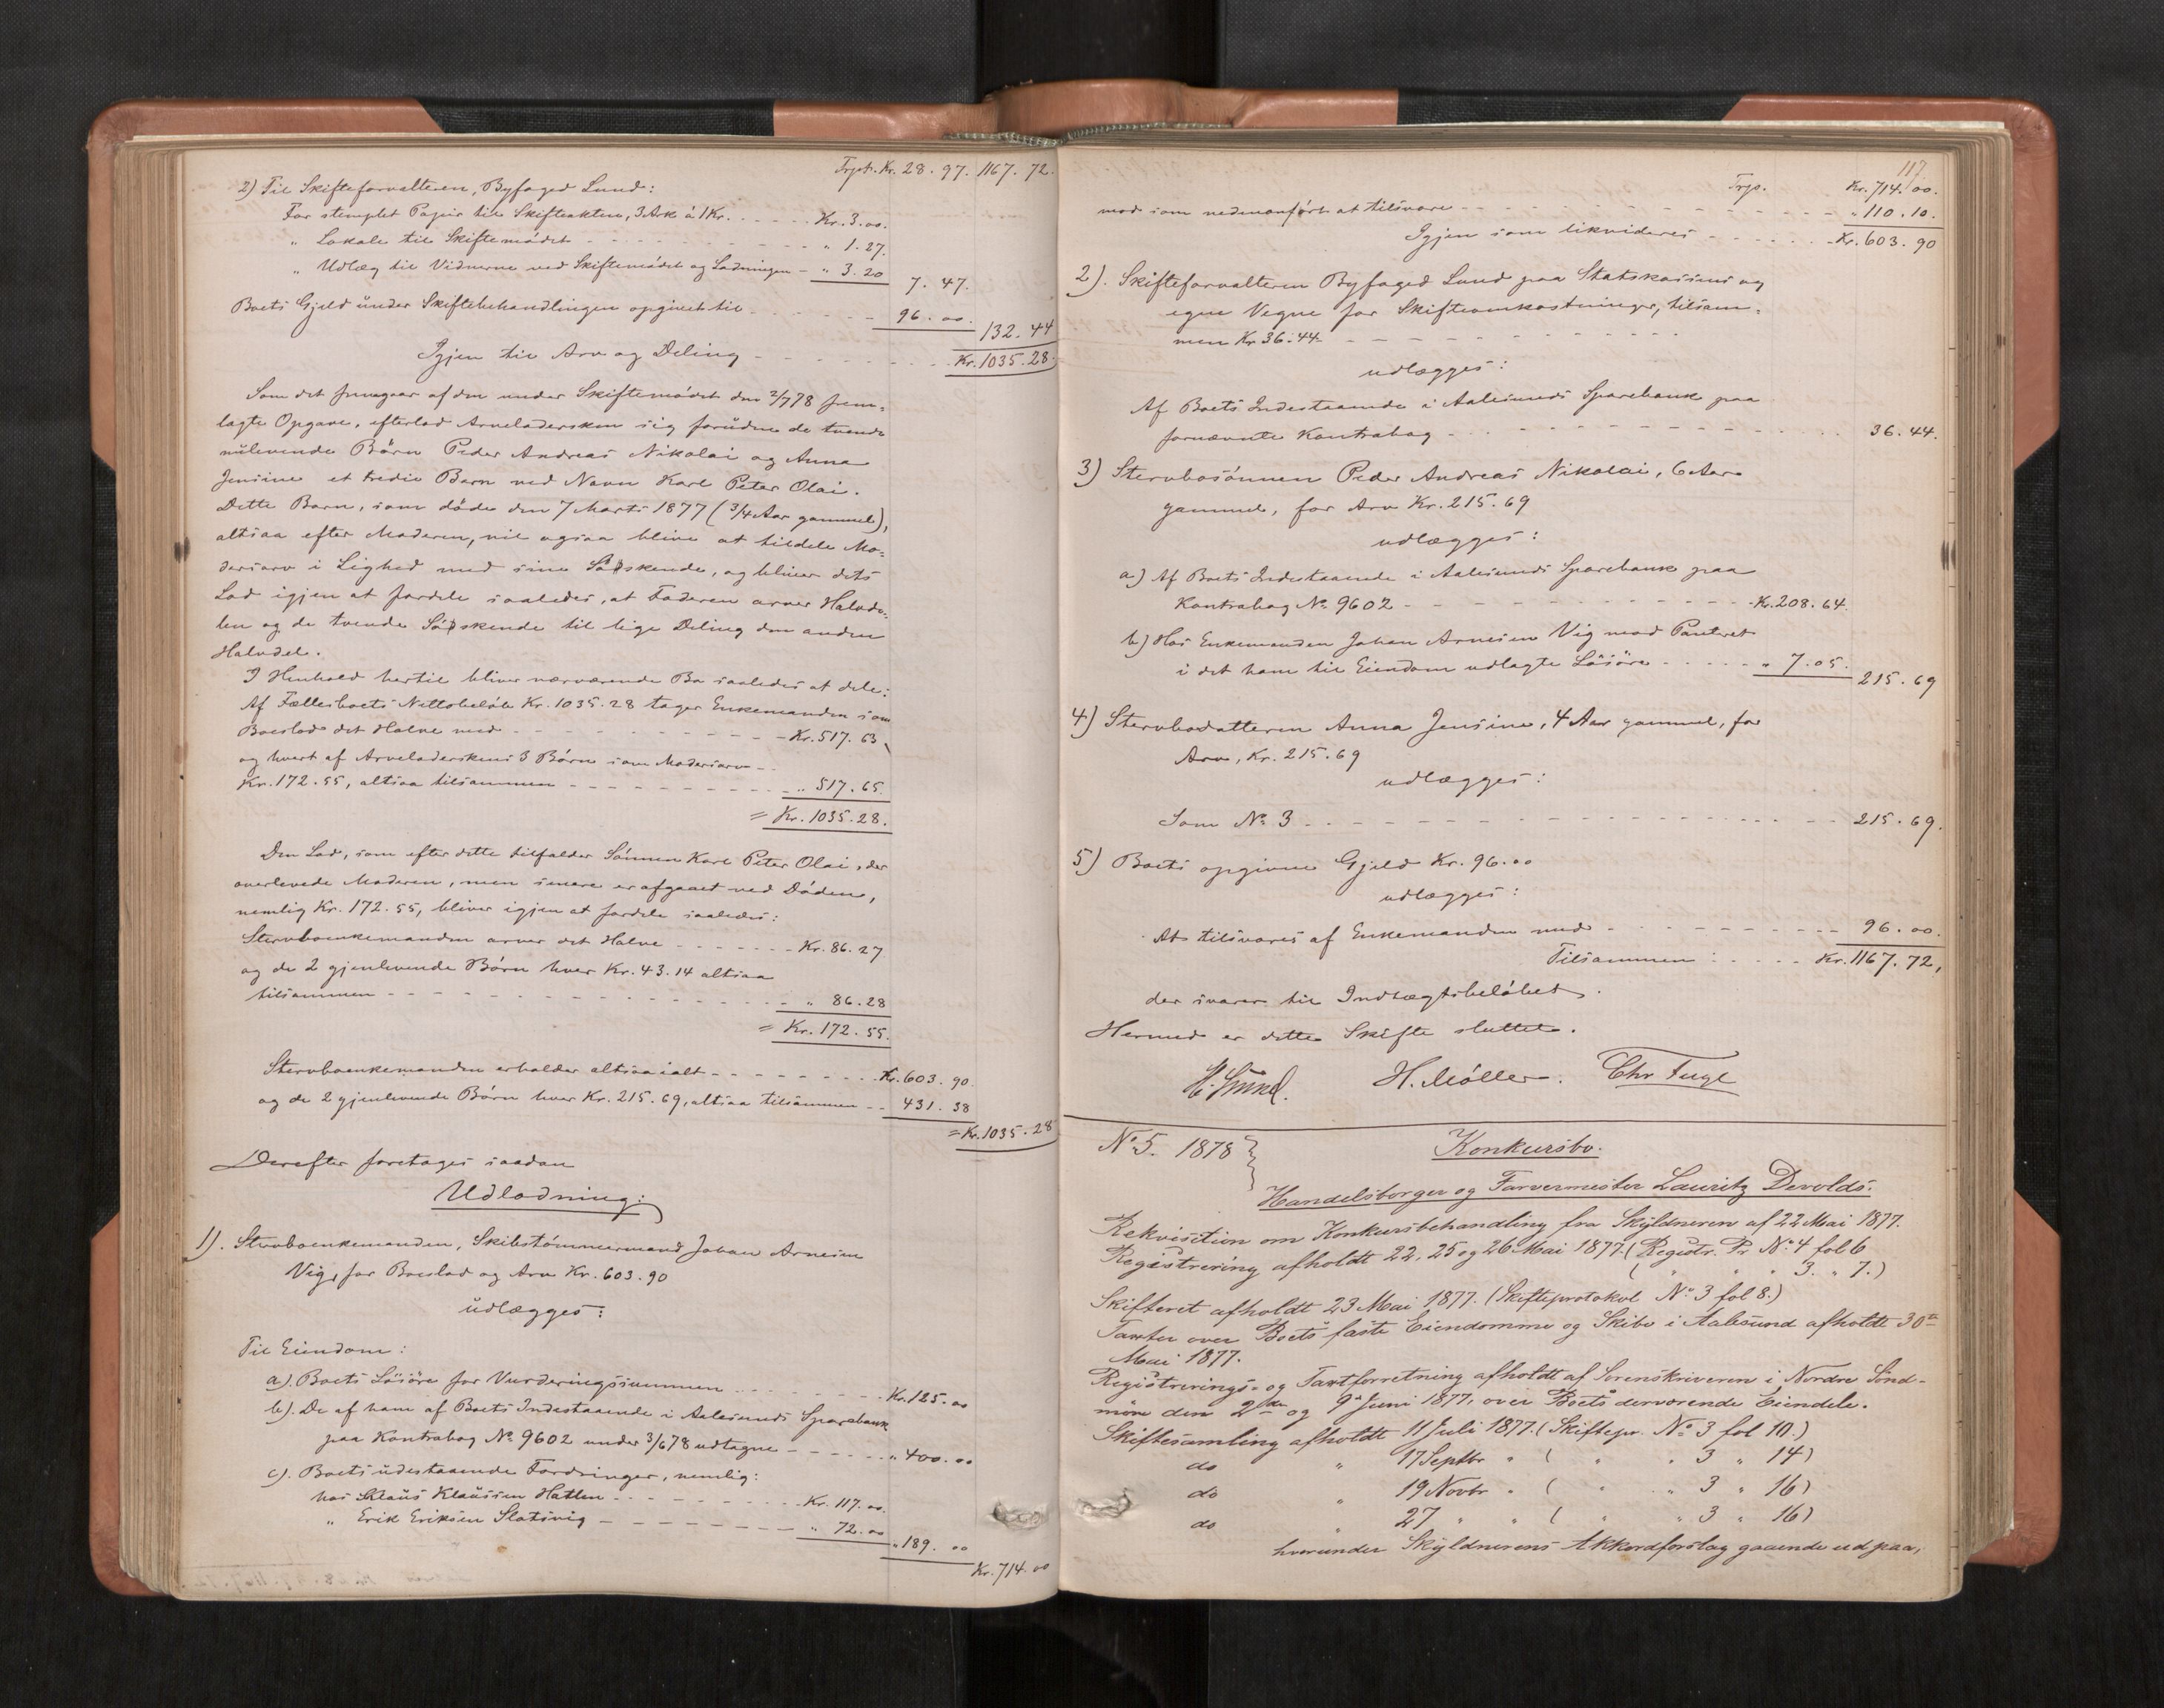 Trpt. Kr. 28. 97. 1167. 72.
2) Til Skifteforvalteren, Byfoged Lund:
For stemplet Papir til Skifteakten, 3 Ark à 1 Kr. Kr. 3. 00.
" Lokale til Skiftemödet " 1. 27.
" Udlæg til Vidnerne ved Skiftemödet og Lodningen " 3. 20 7. 47.
Boets Gjeld under Skiftebehandlingen opgivet til 96. 00. 132. 44
Igjen til Arv og Deling Kr. 1035. 28.
Som det fremgaar af den under Skiftemödet den 2/7 78 frem=
lagte Opgave, efterlod Arveladersken sig foruden de tvende
nulevende Börn Peder Andreas Nikolai og Anna
Jensine et tredie Barn ved Navn Karl Peter Olai.
Dette Barn, som döde den 7 Marts 1877 (3/4 Aar gammel),
altsaa efter Moderen, vil ogsaa blive at tildele Mo=
dersarv i Lighed med sine Södskende, og bliver dets
Lod igjen at fordele saaledes, at Faderen arver Halvde=
len og de tvende Södskende til lige Deling den anden
Halvdel.
I Henhold hertil bliver nærværende Bo saaledes at dele:
Af Fællesboets Nettobelöb Kr. 1035. 28 tager Enkemanden som
Boeslod det Halve med Kr. 517. 63
og hvert af Arveladerskens 3 Börn som Modersarv
Kr. 172. 55, altsaa tilsammen " 517. 65.
= Kr. 1035. 28.
Den Lod, som efter dette tilfalder Sönnen Karl Peter Olai, der
overlevede Moderen, men senere er afgaaet ved Döden,
nemlig Kr. 172. 55, bliver igjen at fordele saaledes:
Stervboenkemanden arver det Halve Kr. 86. 27
og de 2 gjenlevende Börn hver Kr. 43. 14 altsaa
tilsammen " 86. 28
= Kr. 172. 55.
Stervboenkemanden erholder altsaa ialt Kr. 603. 90.
og de 2 gjenlevende Börn hver Kr. 215. 69, altsaa tilsammen 431. 38
= Kr. 1035. 28
Derefter foretages saadan
Udlodning:
1). Stervboenkemanden, Skibstömmermand Johan Arnesen
Vig, for Boeslod og Arv Kr. 603. 90
udlægges:
Til Eiendom:
a). Boets Lösöre for Vurderingssummen Kr. 125. 00
b). De af ham af Boets Indestaaende i Aalesunds Sparebank
paa Kontrabog No. 9602 under 3/6 78 udtagne " 400. 00
c). Boets udestaaende Fordringer, nemlig:
hos Klaus Klaussen Hatlen Kr. 117. 00.
" Erik Eriksen Slatsvig " 72. 00 " 189. 00
Kr. 714. 00
117.
Trp. Kr. 714. 00.
mod som nedenanfört at tilsvare " 110. 10.
Igjen som likvideres Kr. 603. 90
2). Skifteforvalteren Byfoged Lund paa Statskassens og
egne Vegne for Skifteomkostninger, tilsam=
men Kr. 36. 44.
udlægges:
Af Boets Indestaaende i Aalesunds Sparebank paa
fornævnte Kontrabog 36. 44.
3) Stervbosönnen Peder Andreas Nikolai, 6 Aar
gammel, for Arv Kr. 215. 69
udlægges:
a) Af Boets Indestaaende i Aalesunds Sparebank paa
Kontrabog No. 9602 Kr. 208. 64.
b) Hos Enkemanden Johan Arnesen Vig mod Panteret
i det ham til Eiendom udlagte Lösöre " 7. 05. 215. 69
4) Stervbodatteren Anna Jensine, 4 Aar gammel, for
Arv, Kr. 215. 69
udlægges:
Som No. 3 215. 69.
5) Boets opgivne Gjeld Kr. 96. 00
udlægges:
At tilsvares af Enkemanden med 96. 00.
Tilsammen: Kr. 1167. 72,
der svarer til Indtægtsbelöbet.
Hermed er dette Skifte sluttet.
Lund. H. Möller. Chr Fugl
No 5. 1878 Konkursbo.
Handelsborger og Farvermester Lauritz Devolds.
Rekvisition om Konkursbehandling fra Skyldneren af 22 Mai 1877.
Registrering afholdt 22, 25 og 26 Mai 1877. (Registr. Pr No. 4 fol 6
( " " " 3. " 7.)
Skifteret afholdt 23 Mai 1877. (Skifteprotokol No. 3 fol 8.)
Taxter over Boets faste Eiendomme og Skibe i Aalesund afholdt 30te
Mai 1877.
Registrerings- og Taxtforretning afholdt af Sorenskriveren i Nordre Sönd-
möre den 2den og 9de Juni 1877, over Boets derværende Eiendele.
Skiftesamling afholdt 11 Juli 1877. (Skiftepr. No. 3 fol 10.)
do " 17 Septbr " ( " " 3 " 14)
do " 19 Novbr " ( " " 3 " 16)
do " 27 " " ( " " 3 " 16)
hvorunder Skyldnerens Akkordforslag gaaende ud paa,